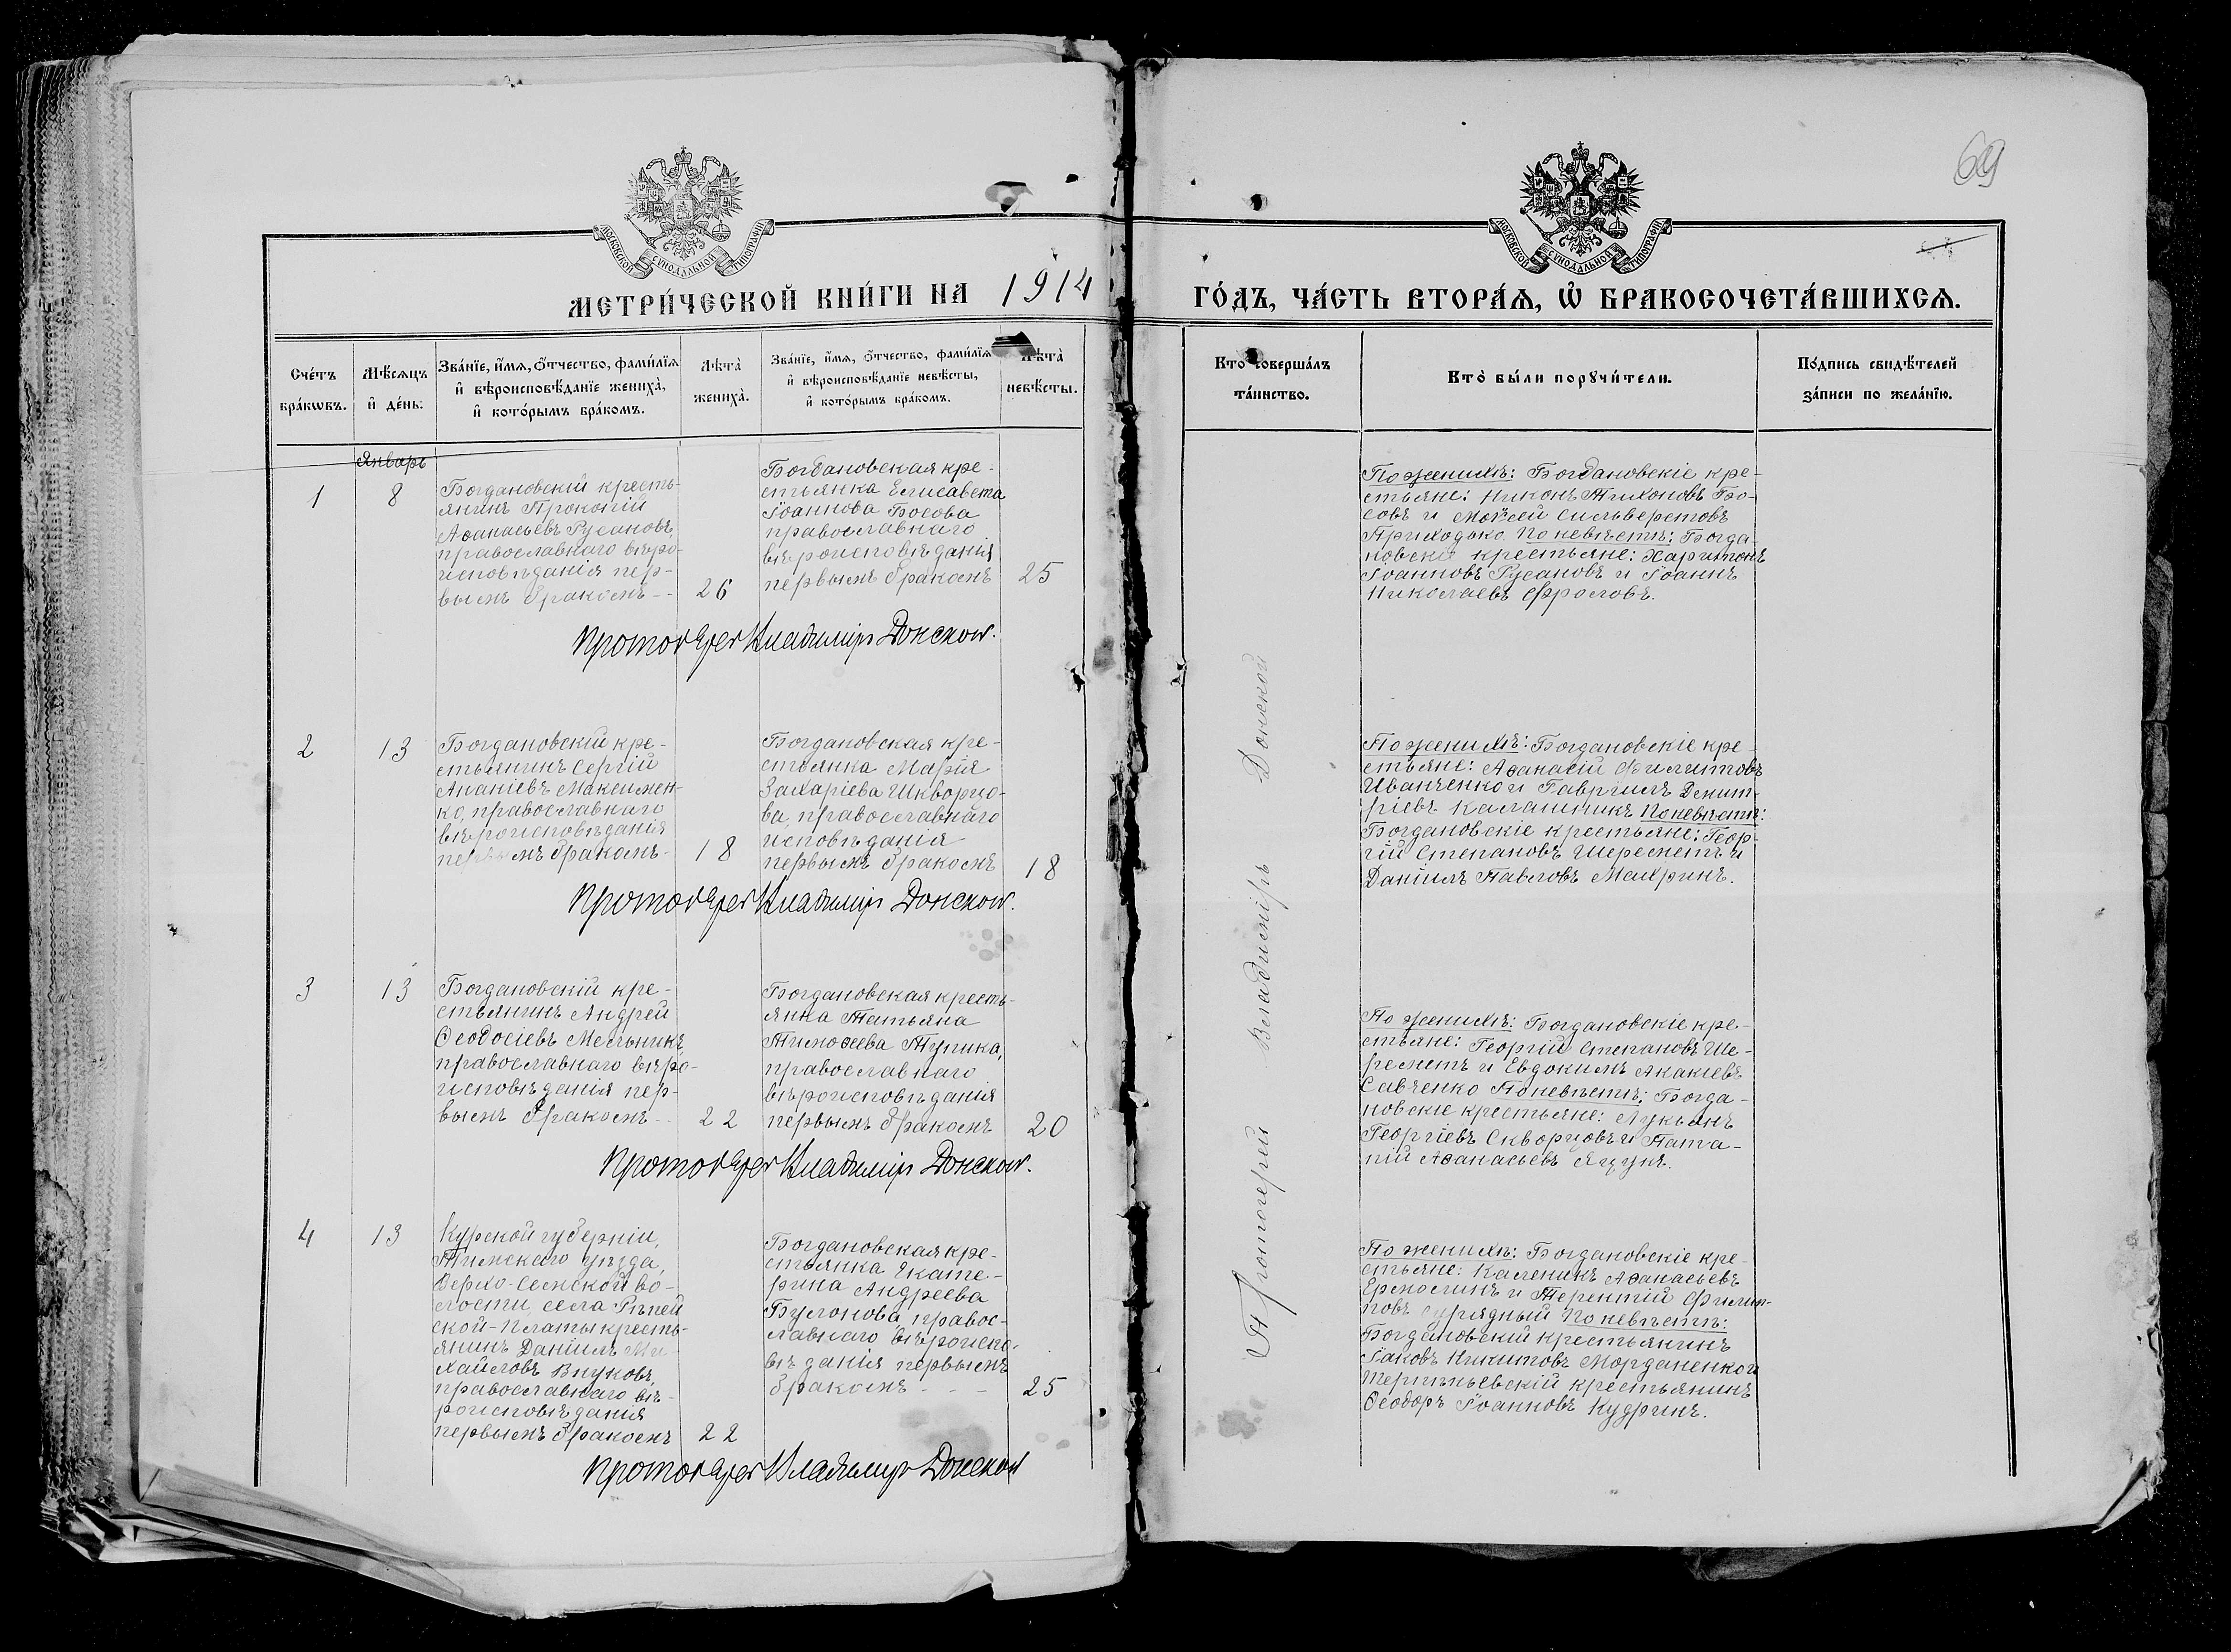 69
МОСКОВСКОЙ СѴНОДАЛЬНОЙ ТИПОГРАФІИ
МОСКОВСКОЙ СѴНОДАЛЬНОЙ ТИПОГРАФІИ
МЕТРИ́ЧЕСКОЙ КНИ́ГИ НА 1914
ГО́ДЪ, ЧА́СТЬ ВТОРА́Ѧ, Ѽ БРАКОСОЧЕТА́ВШИХСѦ.
Сче́тъ
бра́кѡвъ.
Мѣ́сѧцъ
и҆ де́нь.
Зва́нїе, и҆́мѧ, ѻ҆́тчество, фами́лїѧ
и҆ вѣроисповѣ́данїе жениха̀,
и҆ кото́рымъ бра́комъ.
Лѣ́та̀
жениха̀.
Зва́нїе, и҆́мѧ, ѻ҆́тчество, фами́лїѧ
и҆ вѣроисповѣ́данїе невѣ́сты,
и҆ кото́рымъ бра́комъ.
Лѣ́та̀
невѣ́сты.
Кто̀ соверша́лъ
та́инство.
Кто̀ бы́ли порꙋчи́тели.
По́дпись свидѣ́телей
за́писи по жела́нїю.
Январь
1
8
Богдановскій кресть-
янинъ Прокопій
Аѳанасьевъ Русановъ,
православнаго вѣро-
исповѣданія пер-
вымъ бракомъ --
26
Богдановская кре-
стьянка Елисавета
Іоаннова Босова
православнаго
вѣроисповѣданія
первымъ бракомъ
25
Протоіерей Владиміръ Донской.
По женихѣ: Богдановскіе кре-
стьяне: Никонъ Тихоновъ Бо-
совъ и Моѵсей Сильверстовъ
Приходько По невѣстѣ: Богда-
новскіе крестьяне: Харитонъ
Іоанновъ Русановъ и Іоаннъ
Николаевъ Фроловъ.
2
13
Богдановскій кре-
стьянинъ Сергій
Ананіевъ Максимен-
ко, православнаго
вѣроисповѣданія
первымъ бракомъ-
18
Богдановская кре-
стьянка Марія
Захаріева Шкворцо-
ва, православнаго
исповѣданія
первымъ бракомъ
18
Протоіерей Владиміръ Донской.
По женихѣ: Богдановскіе кре-
стьяне: Аѳанасій Филиповъ
Иванченко и Гавріилъ Димит-
ріевъ Калашникъ По невѣстѣ:
Богдановскіе крестьяне: Геор-
гій Степановъ Шереметъ и
Даніилъ Павловъ Махринъ.
3
13
Богдановскій кре-
стьянинъ Андрей
Ѳеодосіевъ Мельникъ,
православнаго вѣро-
исповѣданія пер-
вымъ бракомъ --
22
Богдановская кресть-
янка Татьяна
Тимоѳеева Тупика,
православнаго
вѣроисповѣданія
первымъ бракомъ
20
Протоіерей Владиміръ Донской.
По женихѣ: Богдановскіе кре-
стьяне: Георгій Степановъ Ше-
реметъ и Евдокимъ Акакіевъ
Савченко По невѣстѣ: Богда-
новскіе крестьяне: Лукьянъ
Георгіевъ Скворцовъ и Пата-
пій Аѳанасьевъ Яцунъ.
4
13
Курской губерніи,
Тимскаго уѣзда,
Верхо-Семской во-
лости, села Рѣпей
ской-Платы кресть-
янинъ Даніилъ Ми-
хайловъ Внуковъ,
православнаго вѣ-
роисповѣданія
первымъ бракомъ
22
Богдановская кре-
стьянка Екате-
рина Андреева
Булонова, правос-
лавнаго вѣроиспо-
вѣданія первымъ
бракомъ - - -
25
Протоіерей Владиміръ Донской
По женихѣ: Богдановскіе кре-
стьяне: Каленикъ Аѳанасьевъ
Ермолинъ и Терентій Филип-
повъ Сурядный По невѣстѣ:
Богдановскій крестьянинъ
Іаковъ Никитовъ Морданенко и
Терпѣньевскій крестьянинъ
Ѳеодоръ Іоанновъ Кудринъ.
Протоіерей Владиміръ Донской